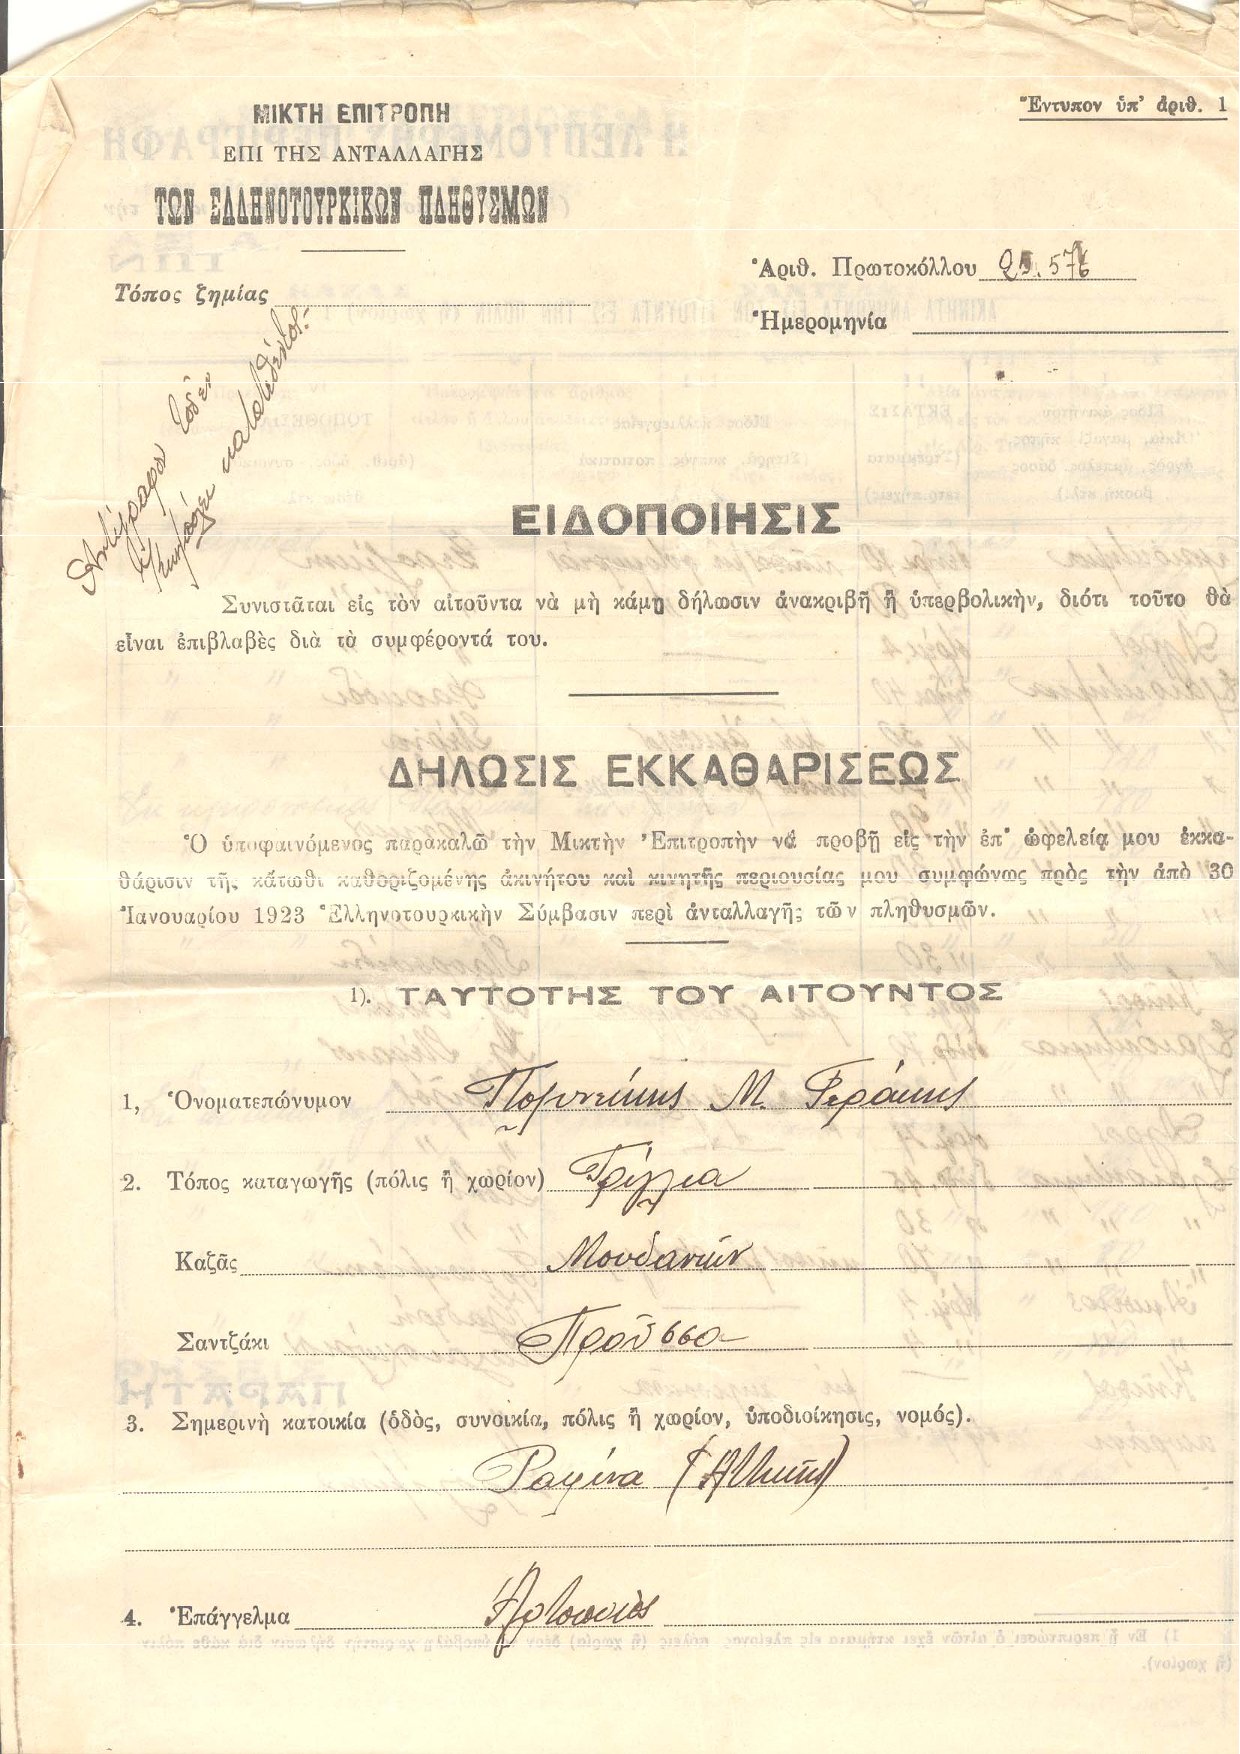 ΜΙΚΤΗ ΕΠΙΤΡΟΠΗ
ΕΠΙ ΤΗΣ ΑΝΤΑΛΛΑΓΗΣ
ΤΩΝ ΕΛΛΗΝΟΤΟΥΡΚΙΚΩΝ ΠΛΗΘΥΣΜΩΝ
Ἔντυπον ὑπ' ἀριθ. 1
Ἀριθ. Πρωτοκόλλου
Τόπος ζημίας
Ἡμερομηνία
Ἀντίγραφον
κατατεθέντος.
ΕΙΔΟΠΟΙΗΣΙΣ
Συνιστᾶται εἰς τὸν αἰτοῦντα νὰ μὴ κάμῃ δήλωσιν ἀνακριβῆ ἢ ὑπερβολικὴν, διότι τοῦτο θὰ
εἶναι ἐπιβλαβὲς διὰ τὰ συμφέροντά του.
ΔΗΛΩΣΙΣ ΕΚΚΑΘΑΡΙΣΕΩΣ
Ὁ ὑποφαινόμενος παρακαλῶ τὴν Μικτὴν Ἐπιτροπὴν νὰ προβῇ εἰς τὴν ἐπ' ὠφελείᾳ μου ἐκκα-
θάρισιν τῆς κάτωθι καθοριζομένης ἀκινήτου καὶ κινητῆς περιουσίας μου συμφώνως πρὸς τὴν ἀπὸ 30
Ἰανουαρίου 1923 Ἑλληνοτουρκικὴν Σύμβασιν περὶ ἀνταλλαγῆς τῶν πληθυσμῶν.
1). ΤΑΥΤΟΤΗΣ ΤΟΥ ΑΙΤΟΥΝΤΟΣ
1, Ὀνοματεπώνυμον Πολυνείκης Μ. Φεράκης
2. Τόπος καταγωγῆς (πόλις ἢ χωρίον) Τρίγλια
Καζᾶς Μουδανιῶν
Σαντζάκι Προῦσσα
3. Σημερινὴ κατοικία (ὁδὸς, συνοικία, πόλις ἢ χωρίον, ὑποδιοίκησις, νομός).
Ραφίνα (Ἀττικῆς)
4. Ἐπάγγελμα Ἀρτοποιὸς